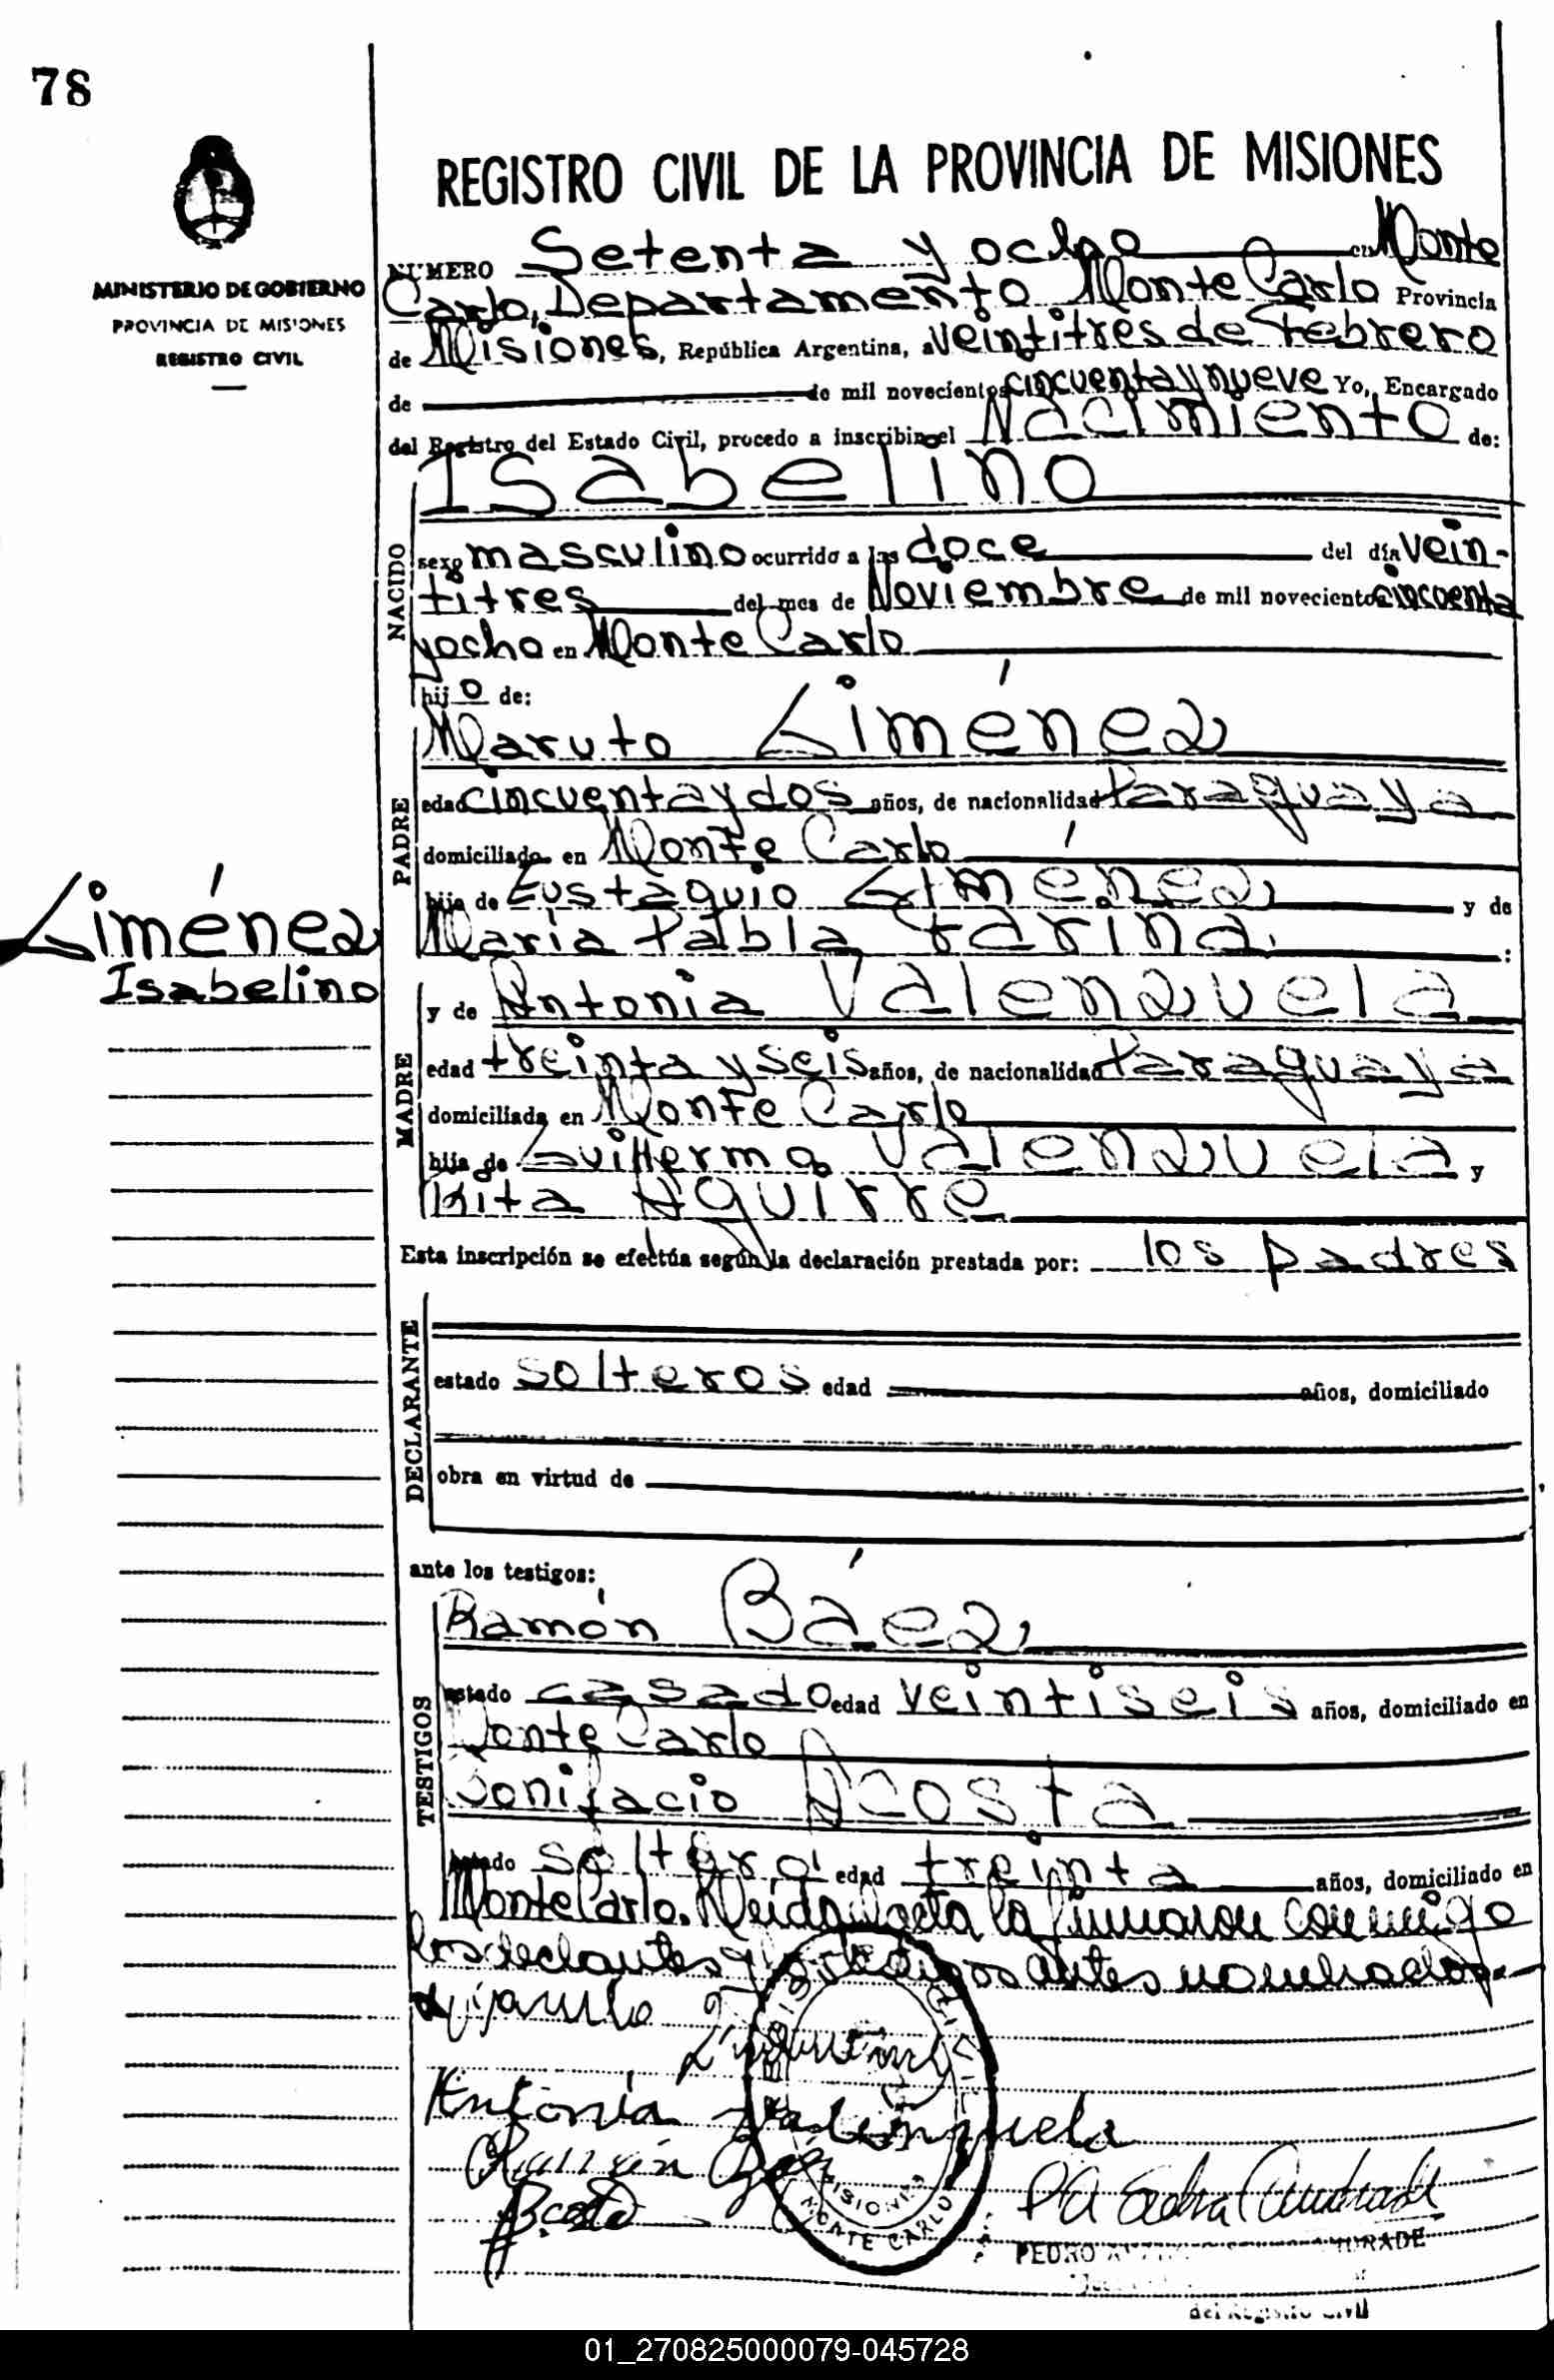 78
REGISTRO CIVIL DE LA PROVINCIA DE MISIONES
MINISTERIO DE GOBIERNO
PROVINCIA DE MISIONES
REGISTRO CIVIL
NUMERO Setenta y ocho en Monte
Carlo, Departamento Monte Carlo Provincia
de Misiones, República Argentina, a veintitres de Febrero
de de mil novecientos cincuenta y nueve Yo, Encargado
del Registro del Estado Civil, procedo a inscribir el Nacimiento de:
Isabelino
NACIDO
sexo masculino ocurrido a las doce del día vein-
titres del mes de Noviembre de mil novecientos cincuenta
y ocho en Monte Carlo
hijo de:
PADRE
Maruto Giménez
edad cincuenta y dos años, de nacionalidad Paraguaya
domiciliado en Monte Carlo
hijo de Eustaquio Giménez y de
María Pabla Fariña :
Giménez
Isabelino
MADRE
y de Antonia Valenzuela
edad treinta y seis años, de nacionalidad Paraguaya
domiciliada en Monte Carlo
hija de Guillermo Valenzuela y
Rita Aguirre
Esta inscripción se efectúa según la declaración prestada por: los padres
DECLARANTE
estado solteros edad años, domiciliado
obra en virtud de
ante los testigos:
TESTIGOS
Ramón Báez
estado casado edad veintiseis años, domiciliado en
Monte Carlo
Bonifacio Acosta
estado soltero edad treinta años, domiciliado en
Monte Carlo. Leida el acta la firmaron conmigo
los declantes y los testigos antes nombrados.
Antonia Valenzuela
Ramón Báez
PEDRO ANDRADE
del Registro Civil
MISIONES
MONTE CARLO
01_270825000079-045728